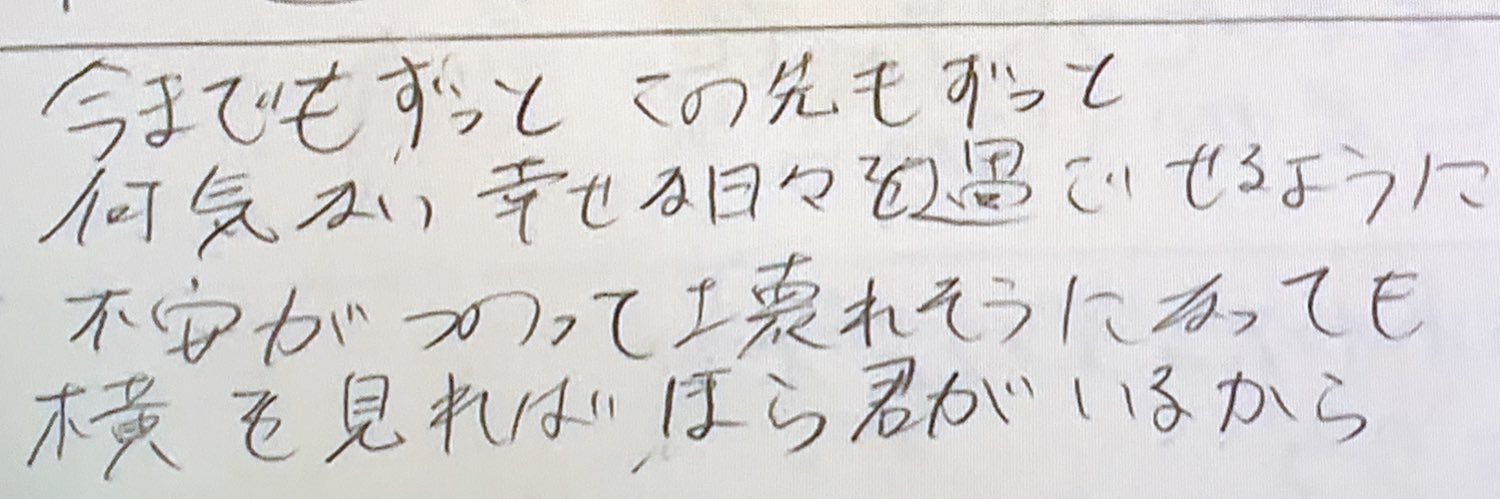 今までもずっと この先もずっと
何気ない幸せな日々を過ごせるように
不安がつのって壊れそうになっても
横を見ればほら君がいるから